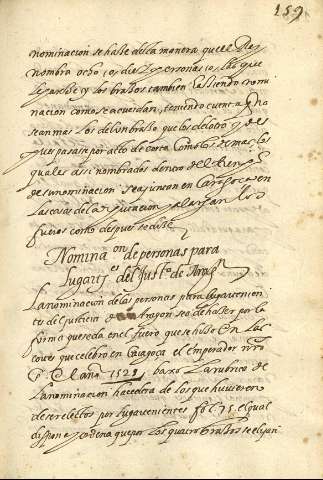 159
nominacion se haze desta manera, que el Rey
nombra ocho, o, diez personas, o, las que
le parece y los brazos tambien haziendo nomi
nacion como se acuerdan, teniendo cuenta q̃ no
sean mas los de un brazo que los de otro y des
pues passa se por alto de
quales assi nombrados dentro del Reyno
de su nominacion se ajuntan en Caragoça en
las casas de la Diputacion
fueros como despues se dira
Nominaon de personas para
lugartes del Justa de Arag
La nominacion de las personas para lugartenien
te del Justicia de Aragon se a de hazer por la
forma que se da en el fuero que se hizo En las
cortes que celebro en Caragoça el Emperador nrō
s.r El año 1528, baxo La rubrica de
La nominacion hacedera de los que huvieren
de ser electos por lugartenientes fol. 75. el qual
dispone y ordena que por los quatro brazos se elijan